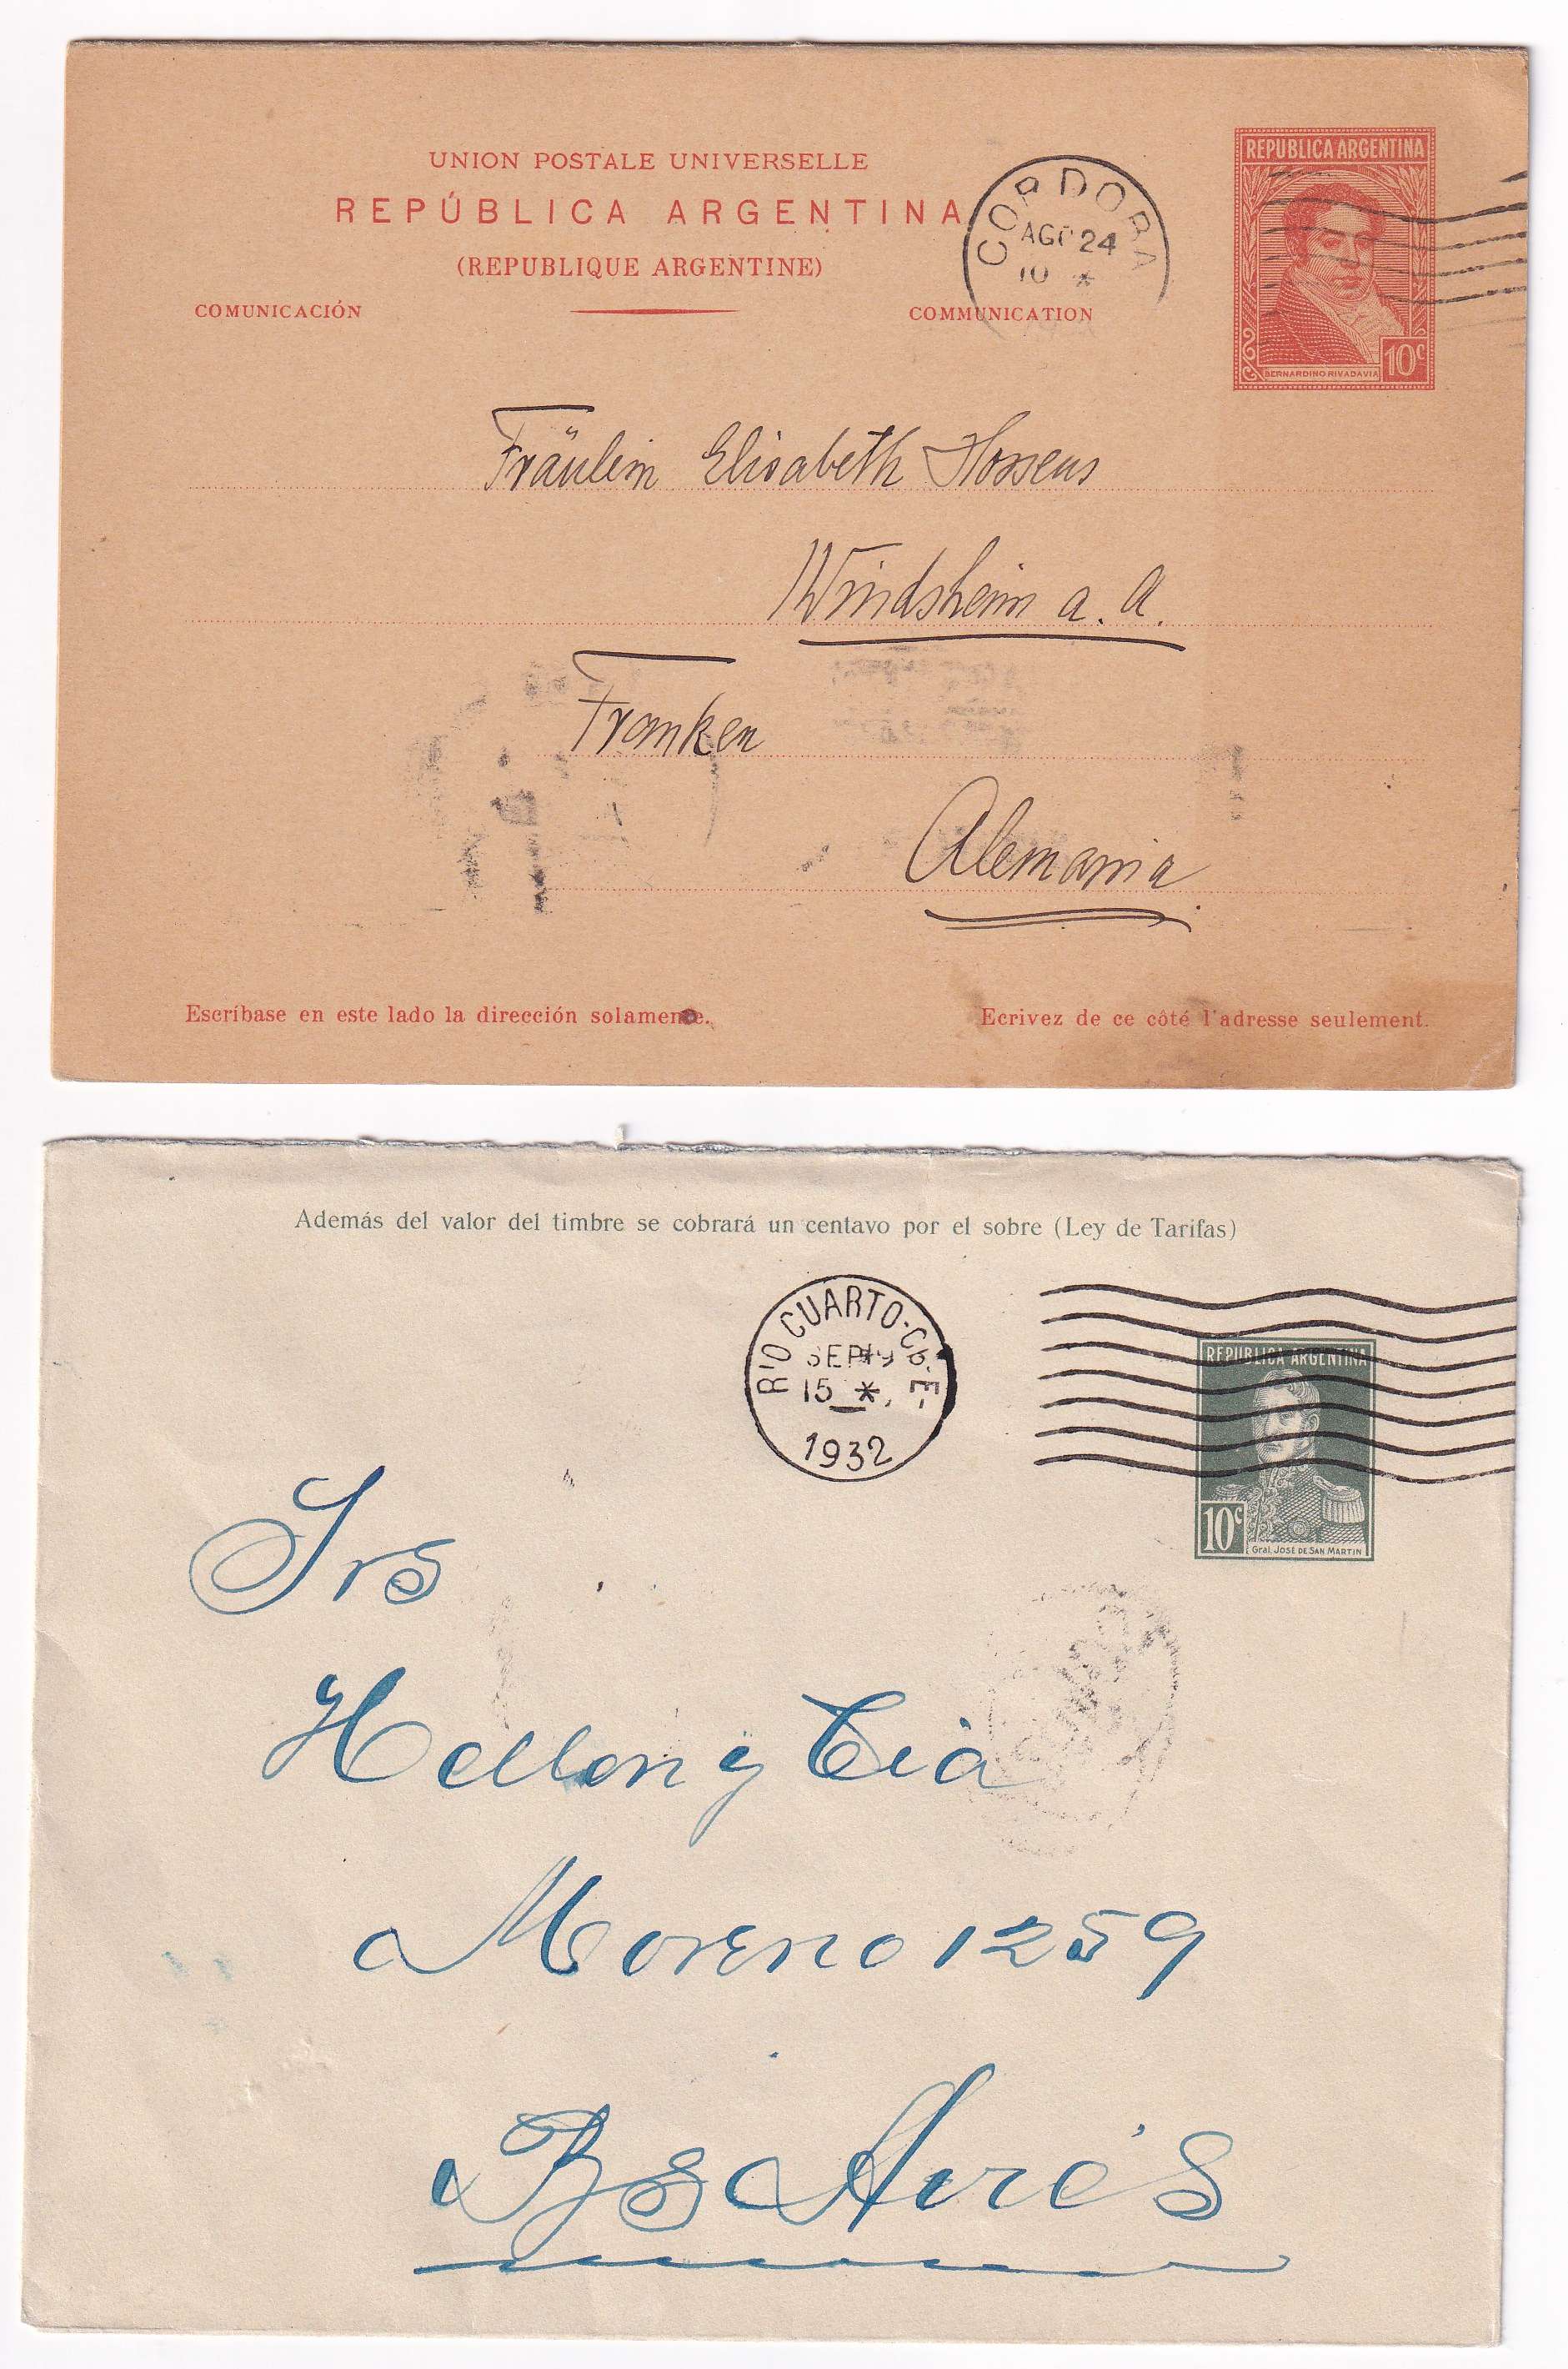 UNION POSTALE UNIVERSELLE
REPÚBLICA ARGENTINA
(REPUBLIQUE ARGENTINE)
COMUNICACIÓN
COMMUNICATION
CORDOBA
AGO 24
10 *
REPUBLICA ARGENTINA
BERNARDINO RIVADAVIA
10c
Fräulein Elisabeth Hosseus
Windsheim a. A.
Franken
Alemania
Escríbase en este lado la dirección solamente.
Ecrivez de ce côté l'adresse seulement.
Además del valor del timbre se cobrará un centavo por el sobre (Ley de Tarifas)
RIO CUARTO-
SEP 19
15 *
1932
REPUBLICA ARGENTINA
10c
Gral. JOSÉ DE SAN MARTIN
Srs
y Cia
Moreno 1259
Bs Aires